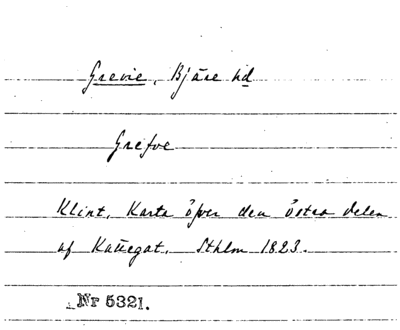 Grevie, Bjäre hd
Grefve
Klint, Karta öfver den östra delen
af Kattegat. Sthlm 1823.
Nr 5321.